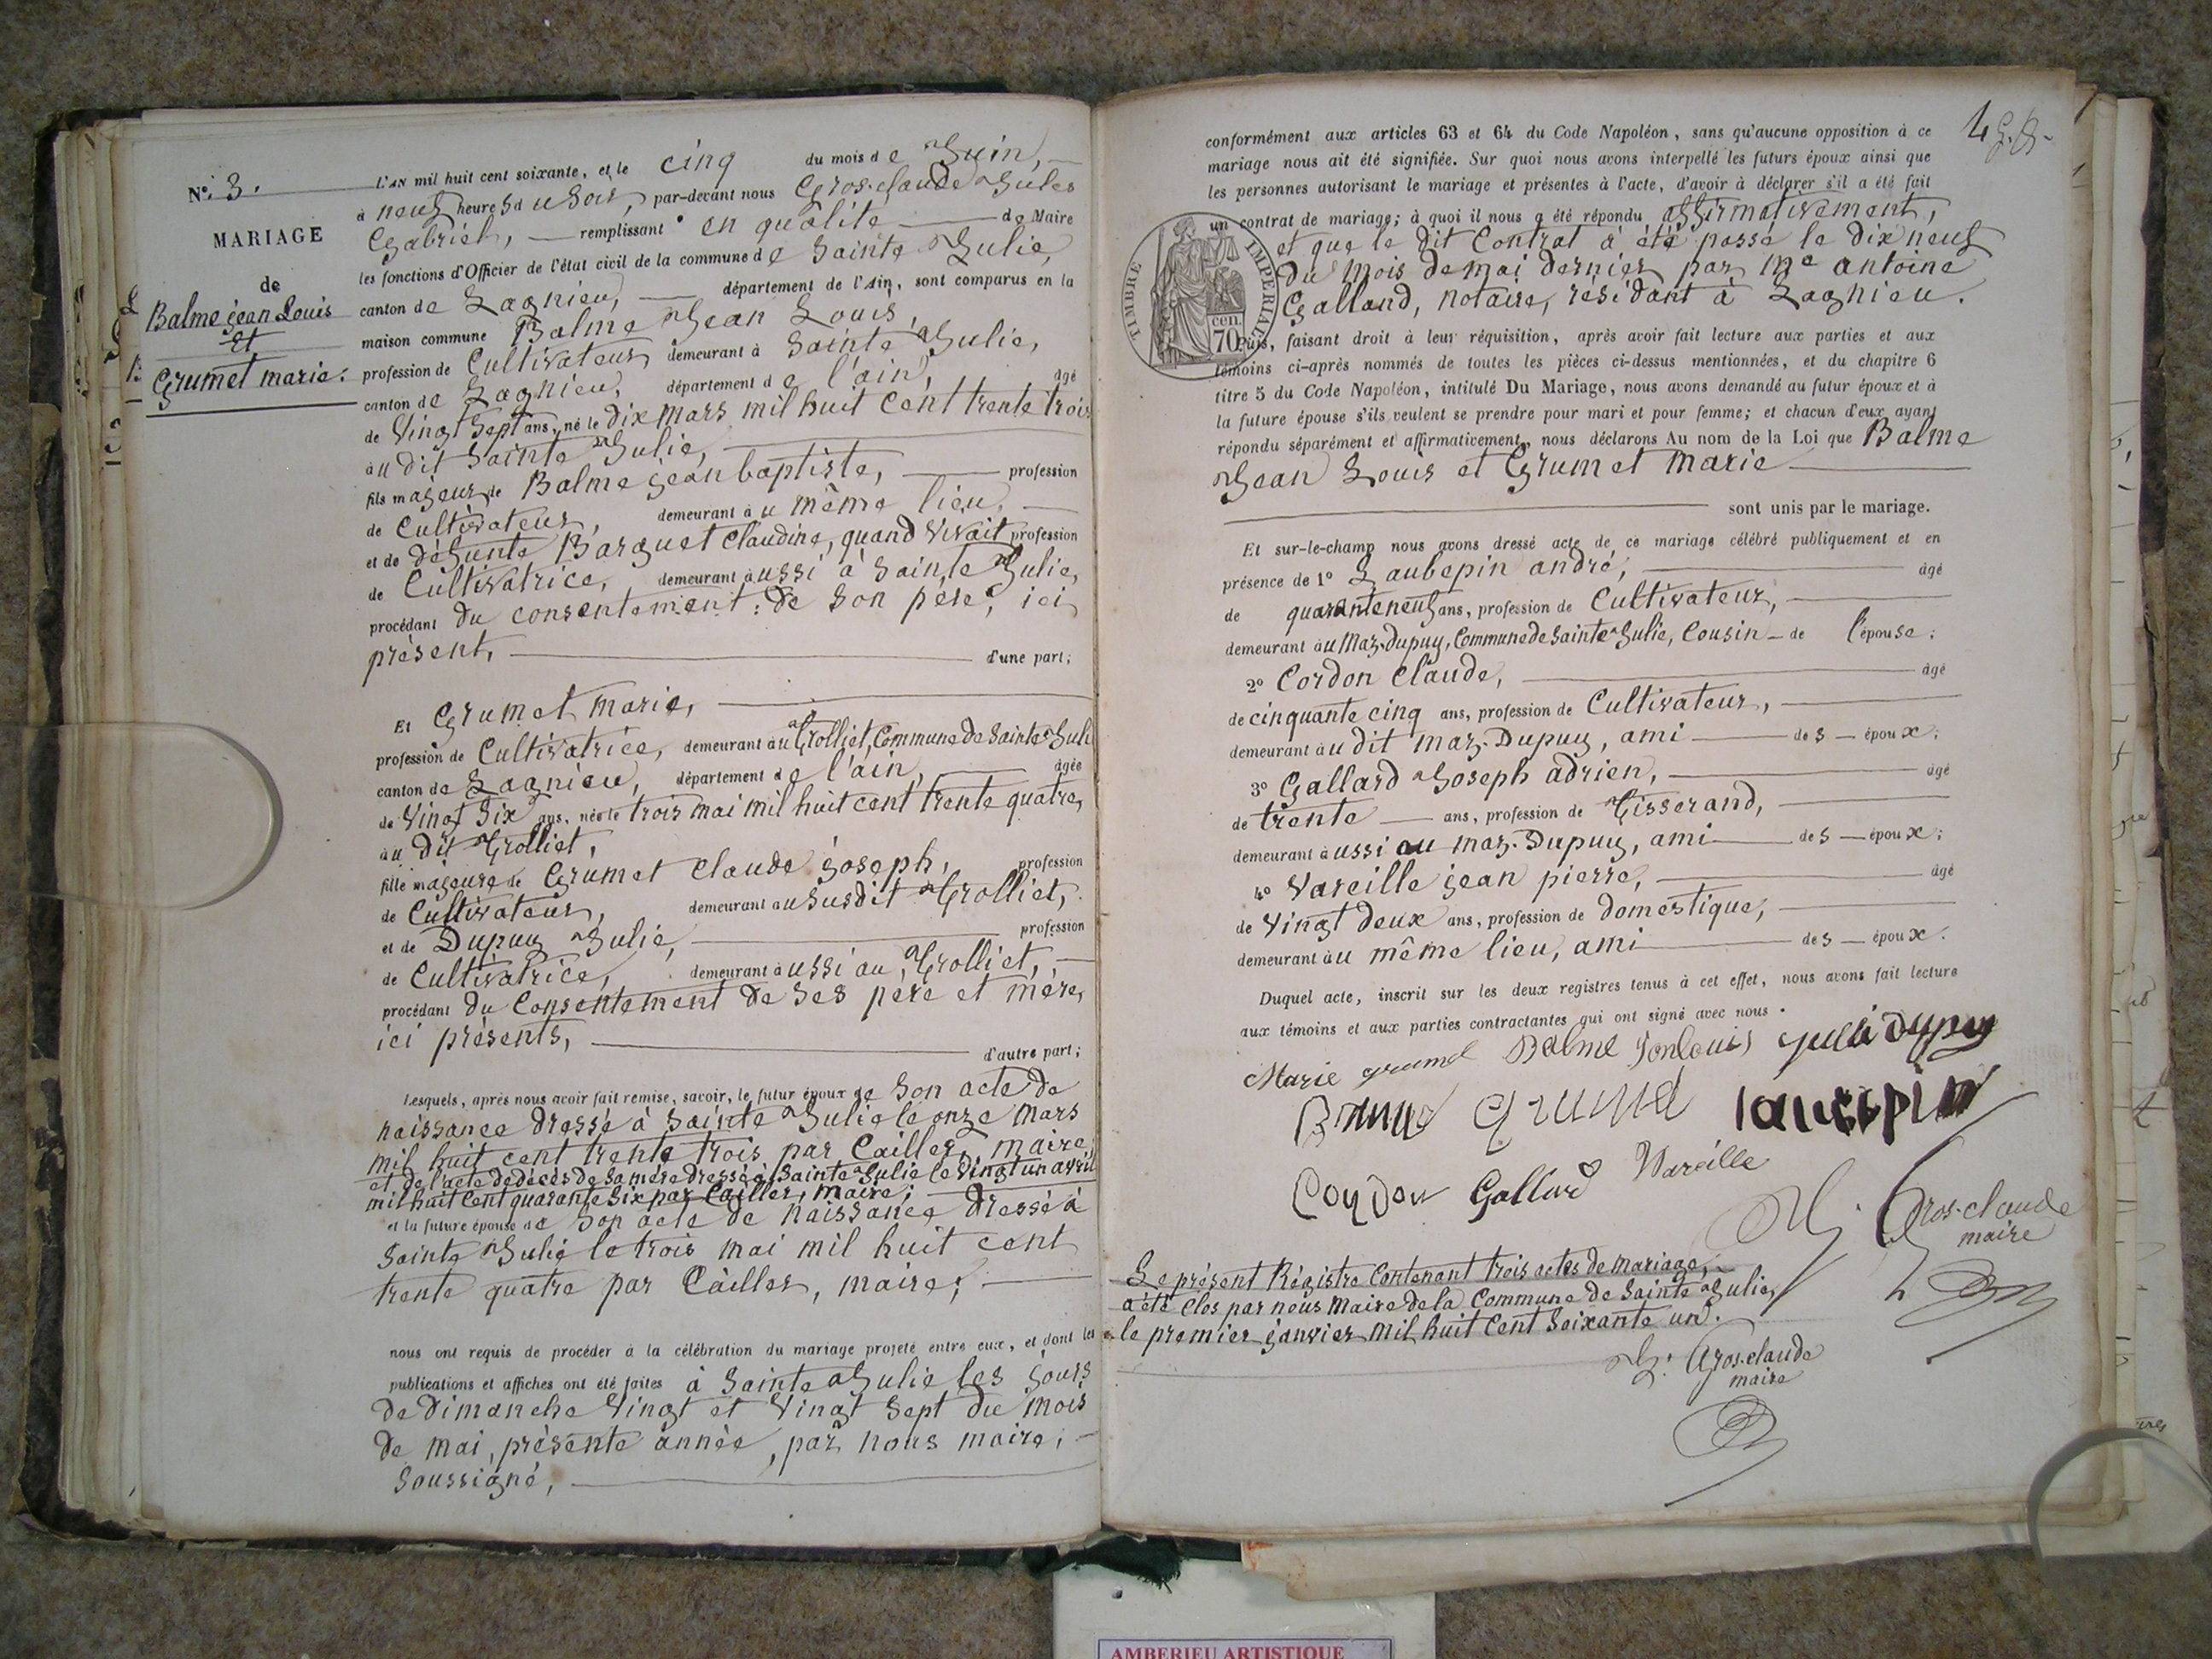 N° 3.
MARIAGE
de
Balme jean Louis
Et
Grumet marie.
L'AN mil huit cent soixante, et le cinq du mois de Juin,
à neuf heures du Soir, par-devant nous Gros-claude Jules
Gabriel, remplissant en qualité de Maire
les fonctions d'Officier de l'état civil de la commune de Sainte Julie,
canton de Lagnieu, département de l'Ain, sont comparus en la
maison commune Balme Jean Louis,
profession de Cultivateur, demeurant à Sainte Julie,
canton de Lagnieu, département de l'ain, âgé
de Vingt Sept ans, né le dix mars mil huit cent trente trois
au dit Sainte Julie,
fils majeur de Balme jean baptiste, profession
de Cultivateur, demeurant au même lieu,
et de défunte Barquet Claudine, quand Vivait profession
de Cultivatrice, demeurant aussi à Sainte Julie,
procédant du consentement de Son père, ici
présent, d'une part;
Et Grumet marie,
profession de Cultivatrice, demeurant au Trolliet, Commune de Sainte Juli
canton de Lagnieu, département de l'ain, âgée
de Vingt Six ans, née le trois mai mil huit cent trente quatre,
au dit Trolliet,
fille majeure de Grumet Claude joseph, profession
de Cultivateur, demeurant au Susdit Trolliet,
et de Dupuy Julie, profession
de Cultivatrice, demeurant aussi au Trolliet,
procédant du Consentement de Ses père et mère,
ici présents, d'autre part;
Lesquels, après nous avoir fait remise, savoir, le futur époux de Son acte de
naissance dressé à Sainte Julie le onze mars
mil huit cent trente trois par Cailler, maire,
et de l'acte de décès de Sa mère dressé à Sainte Julie le Vingt un avril
mil huit Cent quarante Six par Cailler, maire;
et la future épouse de Son acte de naissance dressé à
Sainte Julie le trois mai mil huit cent
trente quatre par Cailler, maire;
nous ont requis de procéder à la célébration du mariage projeté entre eux, et dont les
publications et affiches ont été faites à Sainte Julie les jours
de Dimanche Vingt et Vingt Sept du mois
de mai, présente année, par nous maire,
Soussigné,
4
conformément aux articles 63 et 64 du Code Napoléon, sans qu'aucune opposition à ce
mariage nous ait été signifiée. Sur quoi nous avons interpellé les futurs époux ainsi que
les personnes autorisant le mariage et présentes à l'acte, d'avoir à déclarer s'il a été fait
un contrat de mariage; à quoi il nous a été répondu affirmativement,
et que le dit Contrat à été passé le dix neuf
du mois de mai dernier par Me antoine
Galland, notaire, résidant à Lagnieu.
TIMBRE IMPERIAL
cen.
70
Puis, faisant droit à leur réquisition, après avoir fait lecture aux parties et aux
témoins ci-après nommés de toutes les pièces ci-dessus mentionnées, et du chapitre 6
titre 5 du Code Napoléon, intitulé Du Mariage, nous avons demandé au futur époux et à
la future épouse s'ils veulent se prendre pour mari et pour femme; et chacun d'eux ayant
répondu séparément et affirmativement, nous déclarons Au nom de la Loi que Balme
Jean Louis et Grumet Marie
sont unis par le mariage.
Et sur-le-champ nous avons dressé acte de ce mariage célébré publiquement et en
présence de 1° Laubepin andré, âgé
de quarante neuf ans, profession de Cultivateur,
demeurant au Maz-Dupuy, Commune de Sainte Julie, Cousin de l'épouse;
2° Cordon Claude, âgé
de cinquante cinq ans, profession de Cultivateur,
demeurant au dit maz-Dupuy, ami des époux;
3° Gallard Joseph adrien, âgé
de trente ans, profession de Tisserand,
demeurant aussi au maz-Dupuy, ami des époux;
4° Vareille jean pierre, âgé
de Vingt deux ans, profession de domestique,
demeurant au même lieu, ami des époux.
Duquel acte, inscrit sur les deux registres tenus à cet effet, nous avons fait lecture
aux témoins et aux parties contractantes qui ont signé avec nous.
Marie grumel Balme jonlouis julie Dupuy
Balme Grumel laubepin
Cordon Gallard Vareille
J. Gros-claude
maire
Le présent Régistre Contenant trois actes de mariage,
a été Clos par nous Maire de la Commune de Sainte Julie,
le premier janvier mil huit Cent Soixante un.
J. Gros-claude
maire
AMBERIEU ARTISTIQUE